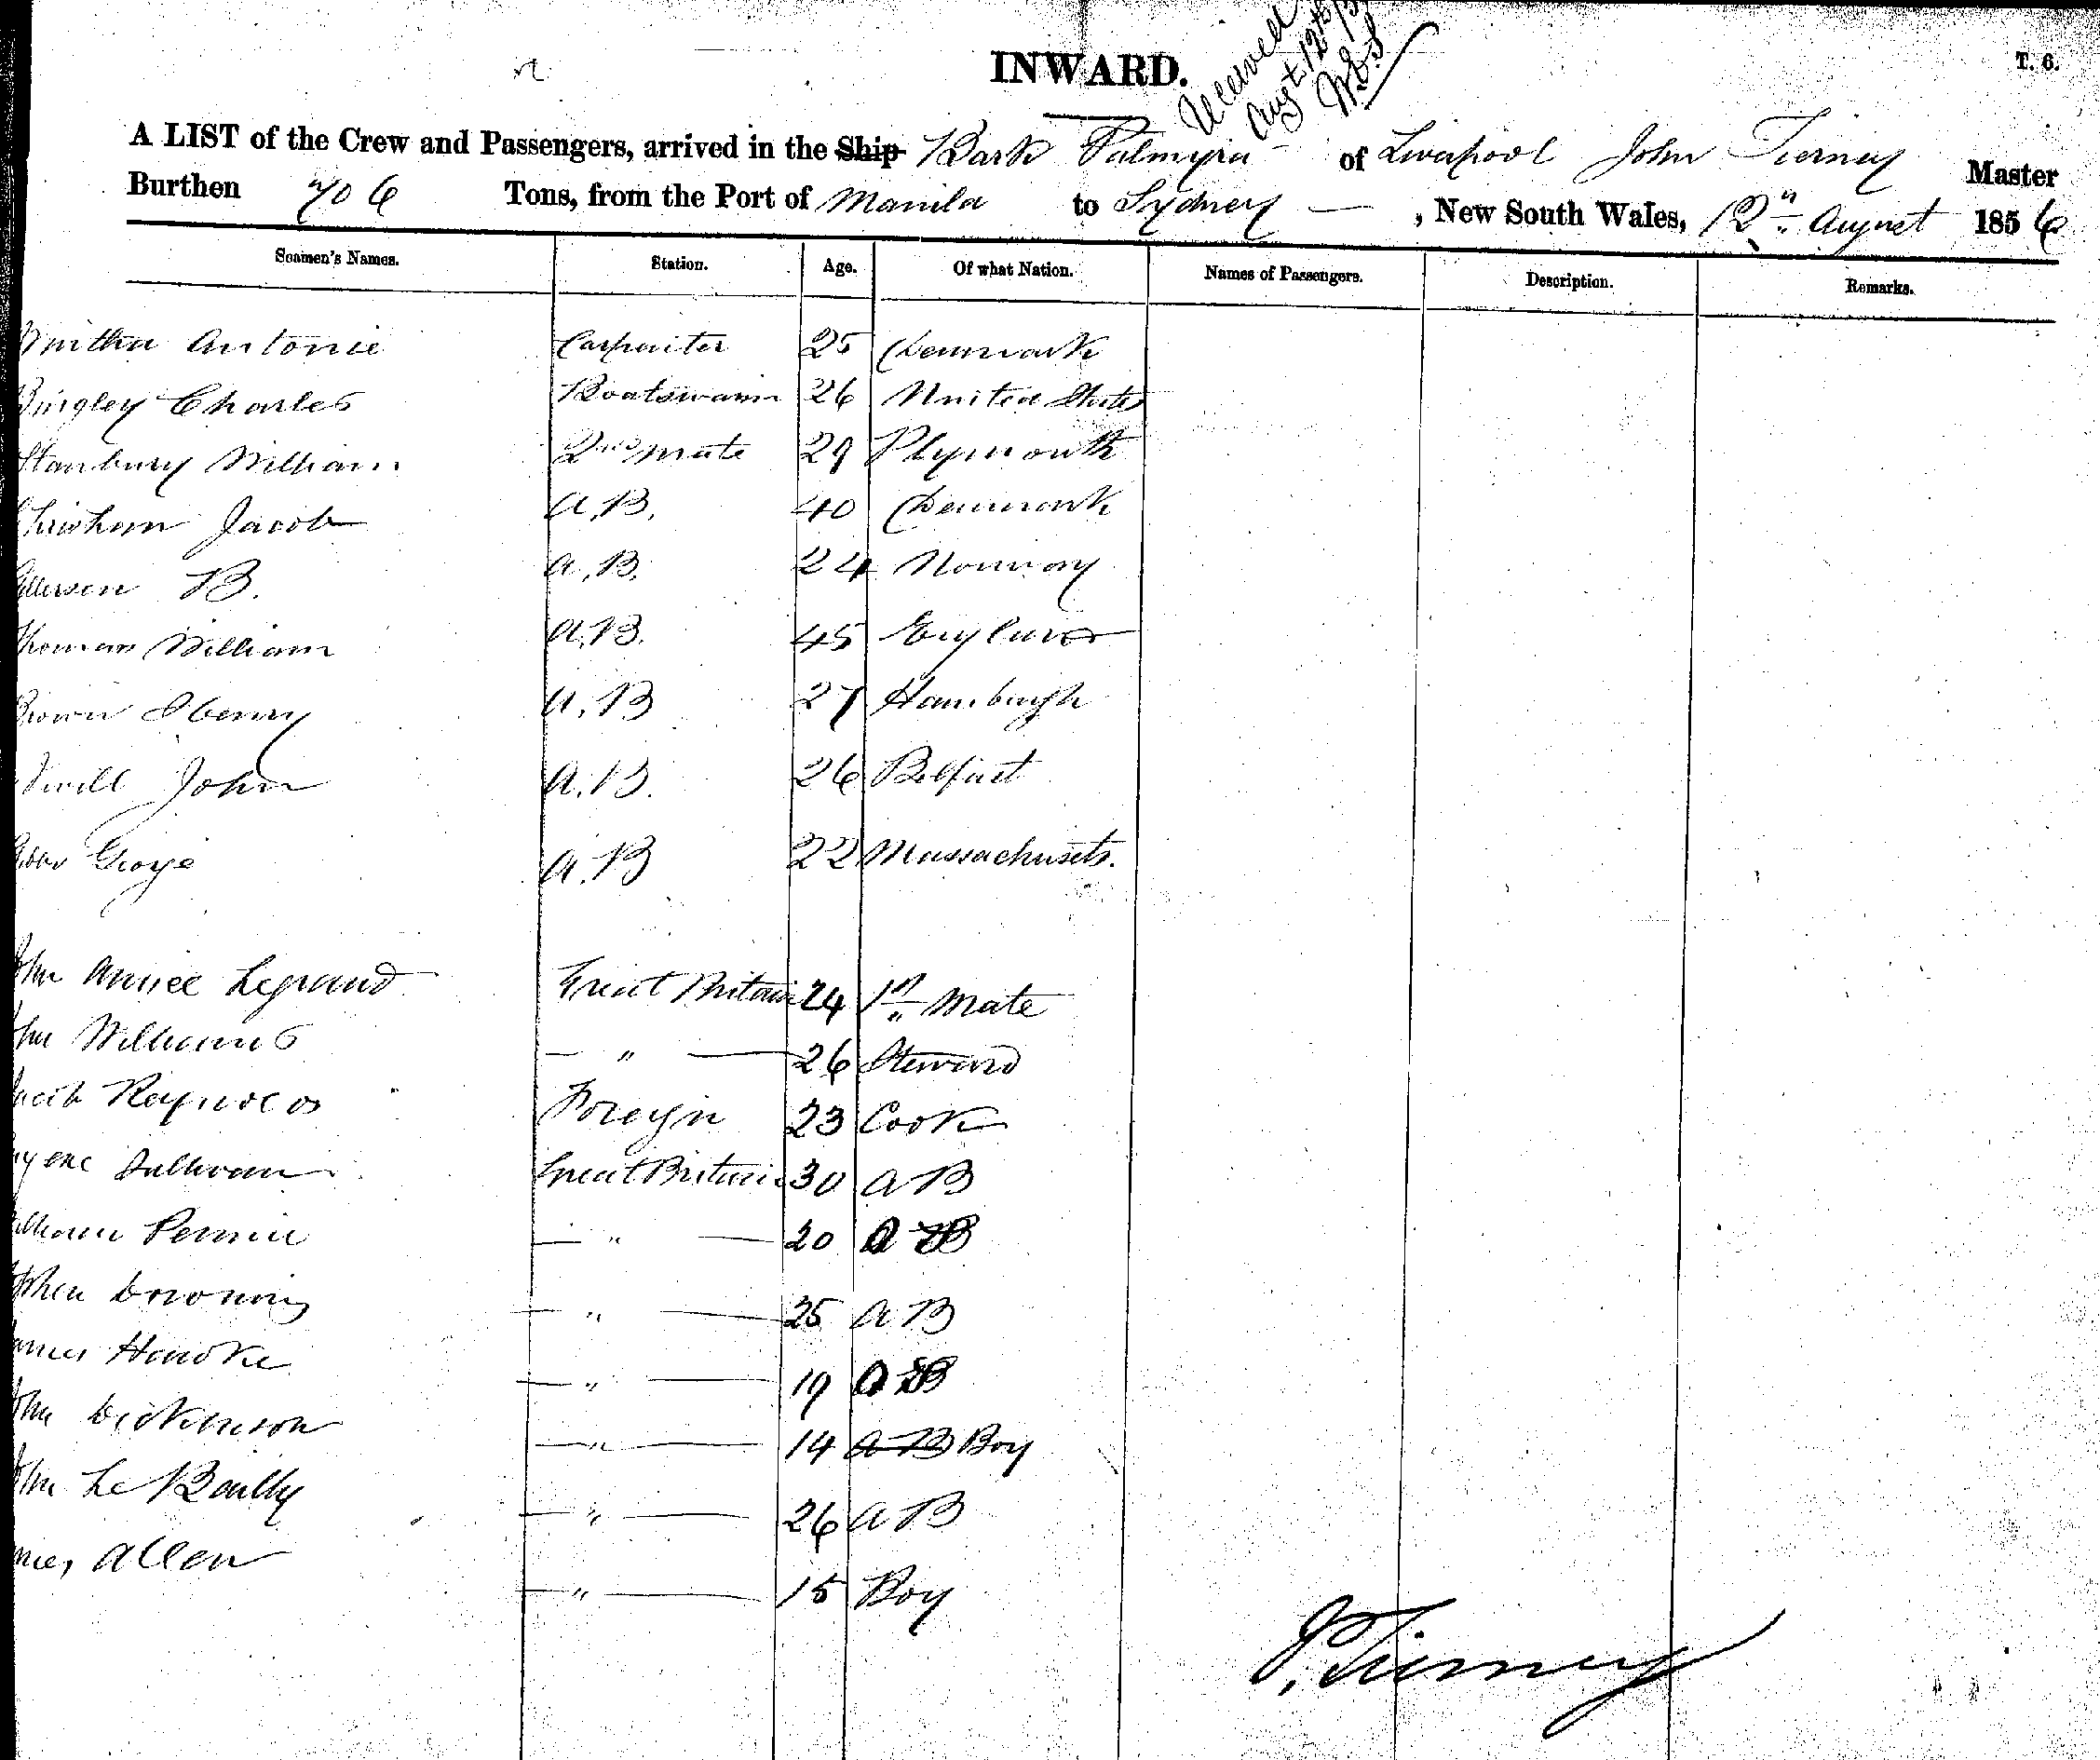 INWARD.
T. 6.
Received
Augt. 12th
A LIST of the Crew and Passengers, arrived in the Ship Bark Palmyra of Liverpool John Tierney Master
Burthen 706 Tons, from the Port of Manila to Sydney — , New South Wales, 12th August 1856
Seamen's Names. Station. Age. Of what Nation. Names of Passengers. Description. Remarks.
Antonie Carpenter 25 Denmark
Bingley Charles Boatswain 26 United States
Stanbury William 2nd mate 29 Plymouth
Jacob A.B. 40 Denmark
B. A.B. 24 Norway
Thomas William A.B. 45 England
Brown Henry A.B 27 Hamburgh
John A.B. 26 Belfast
George A.B 22 Massachusets.
John Legrand Great Britain 24 1st Mate
John Williams — " — 26 Steward
Jacob Reynolds Foreign 23 Cook
Eugene Sullivan Great Britain 30 AB
William — " — 20
Stephen Downing — " — 25 AB
James Hawke — " — 19
John Dickinson — " — 14 AB Boy
John Le Boutly — " — 26 AB
James Allen — " — 15 Boy
J. Tierney